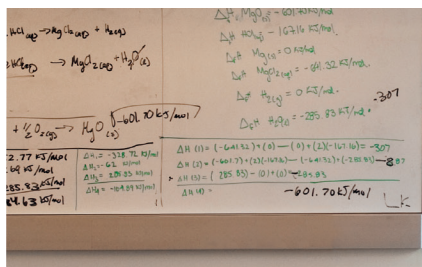 HCl(aq) → MgCl2(aq) + H2(g)
HCl(aq) → MgCl2(aq) + H2O(l)
+ ½O2(g) → MgO(s) -601.70 kJ/mol
2.77 kJ/mol
.69 kJ/mol
285.83 kJ/mol
84.63 kJ/mol
ΔH1 = -328.72 kJ/mol
ΔH2 = -62 kJ/mol
ΔH3 = 285.83 kJ/mol
ΔH4 = -104.89 kJ/mol
ΔfH MgO(s) = -601.70 kJ/mol
ΔfH HCl(aq) -167.16 kJ/mol
ΔfH Mg(s) = 0 kJ/mol
ΔfH MgCl2(aq) = -641.32 kJ/mol
ΔfH H2(g) = 0 kJ/mol.
-307
ΔfH H2O(l) = -285.83 kJ/mol.
ΔH (1) = (-641.32) + (0) - (0) + (2)(-167.16) = -307
ΔH (2) = (-601.7) + (2)(-167.16) - (-641.32) + (-285.83)
ΔH (3) = (285.83) - (0) + (0) = -285.83
ΔH (4) =
-601.70 kJ/mol